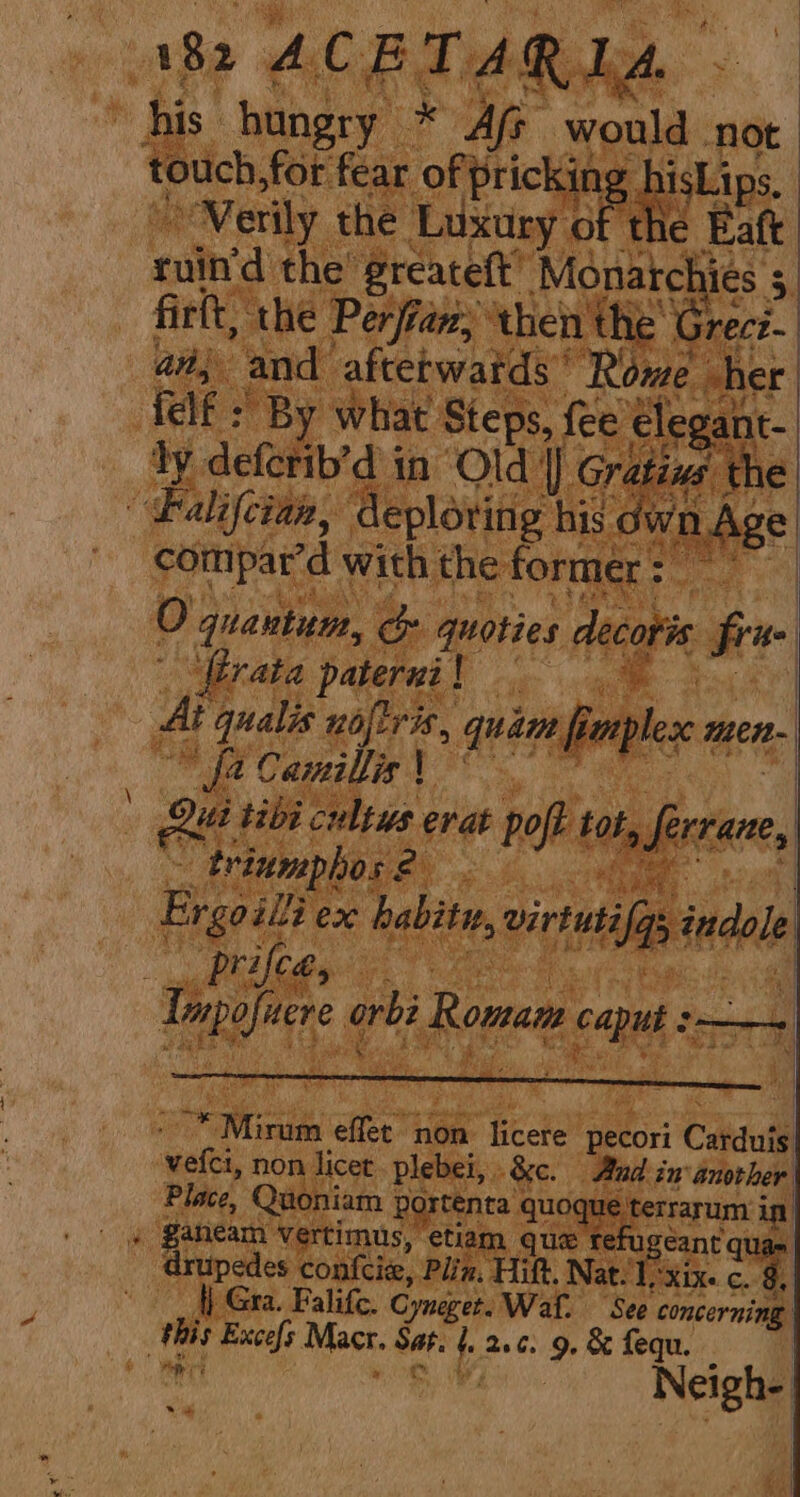 182 ACETARIA.
his hungry * Aſs would not
touch, for fear of pricking his Lips.
Verily the Luxury of the Eaſt
ruin'd the greateſt Monarchies;
firſt, the Perſian, then the Greci-
an, and afterwards Rome her
ſelf: By what Steps, ſee elegant-
ly deſcrib'd in Old || Gratius the
Faliſcian, deploring his own Age
compar'd with the former:
O quantum, & quoties decoris fru-
ſtrata paterni!
At qualis noſtris, quàm ſimplex men-
ſa Camillis!
Qui tibi cultus erat poſt tot, ſerrane,
triumphos?
Ergo illi ex habitu, virtutiſq; indole
priſcæ,
Impoſuere orbi Romam caput:——
* Mirum eſſet non licere pecori Carduis
veſci, non licet plebei, &c. And in another
Place, Quoniam portenta quoque terrarum in
ganeam vertimus, etiam quæ refugeant qua-
drupedes conſciæ, Plin. Hiſt. Nat. l. xix. c. 8.
|| Gra. Faliſc. Cyneget. Waſ. See concerning
this Exceſs Macr. Sat. l. 2. c. 9. & ſequ.
Neigh-